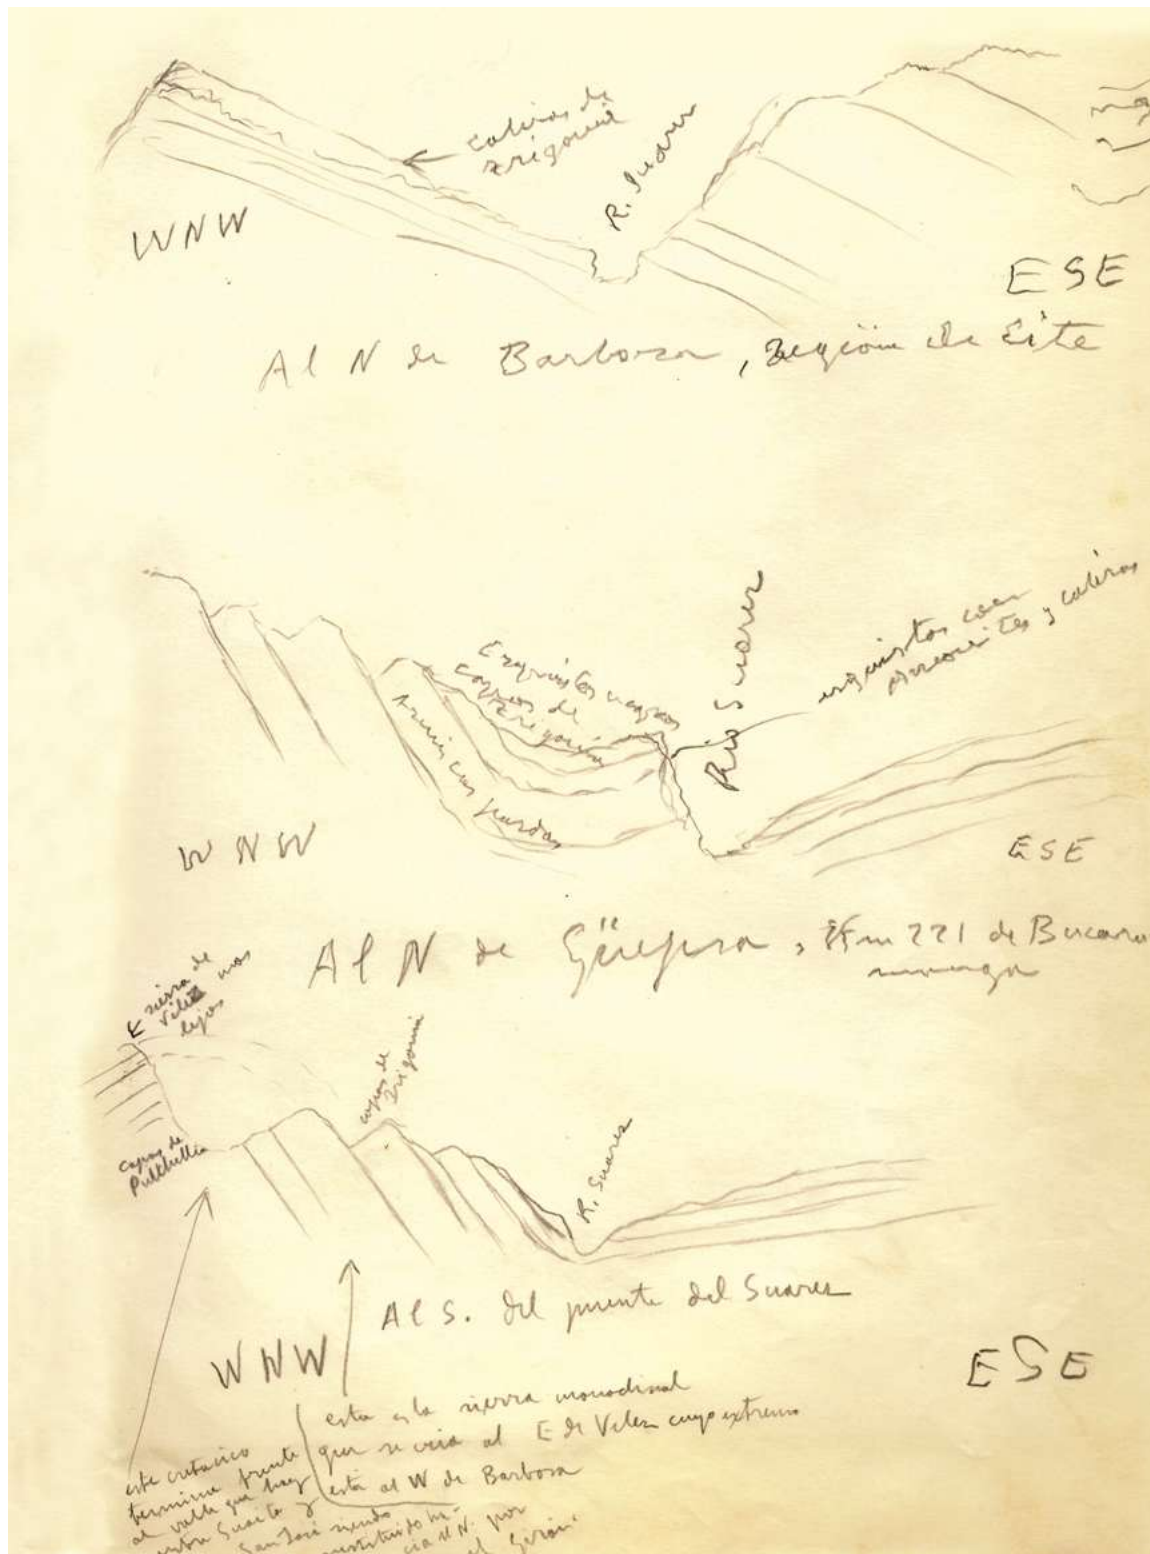 calizas de
trigonia
R. Suarez
WNW
ESE
Al N de Barbosa, región de Cite
Esquistos negros
capas de
trigonia
Rio Suarez
esquistos con
ammonites y calizas
Areniscas pardas
WNW
ESE
Al N de Güepsa, Km 221 de Bucara
manga
sierra de
Velez mas
lejos
capas de
trigonia
R. Suarez
capas de
Pulchellia
Al S. del puente del Suarez
WNW
ESE
esta es la sierra monoclinal
que se veia al E de Velez cuyo extremo
está al W de Barbosa
este cretacico
termina frente
al valle que hay
entre Suaita y
San José siendo
sustituido ha-
cia el N. por
el Girón